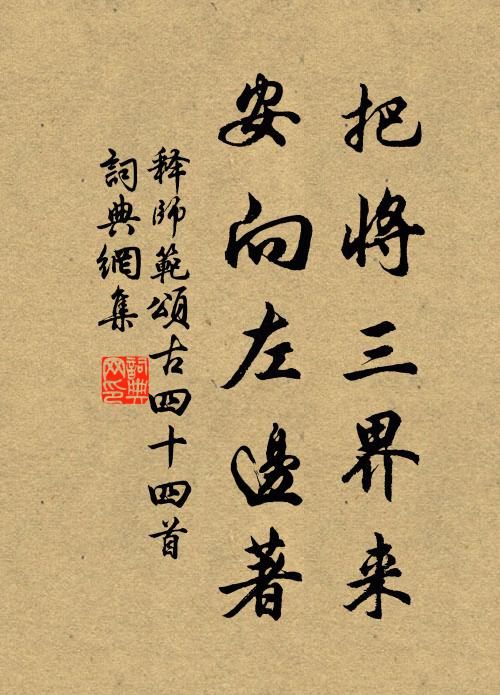 把将三界来
安向左邊著
释師範頌古四十四首
詞典網集
詞典网印